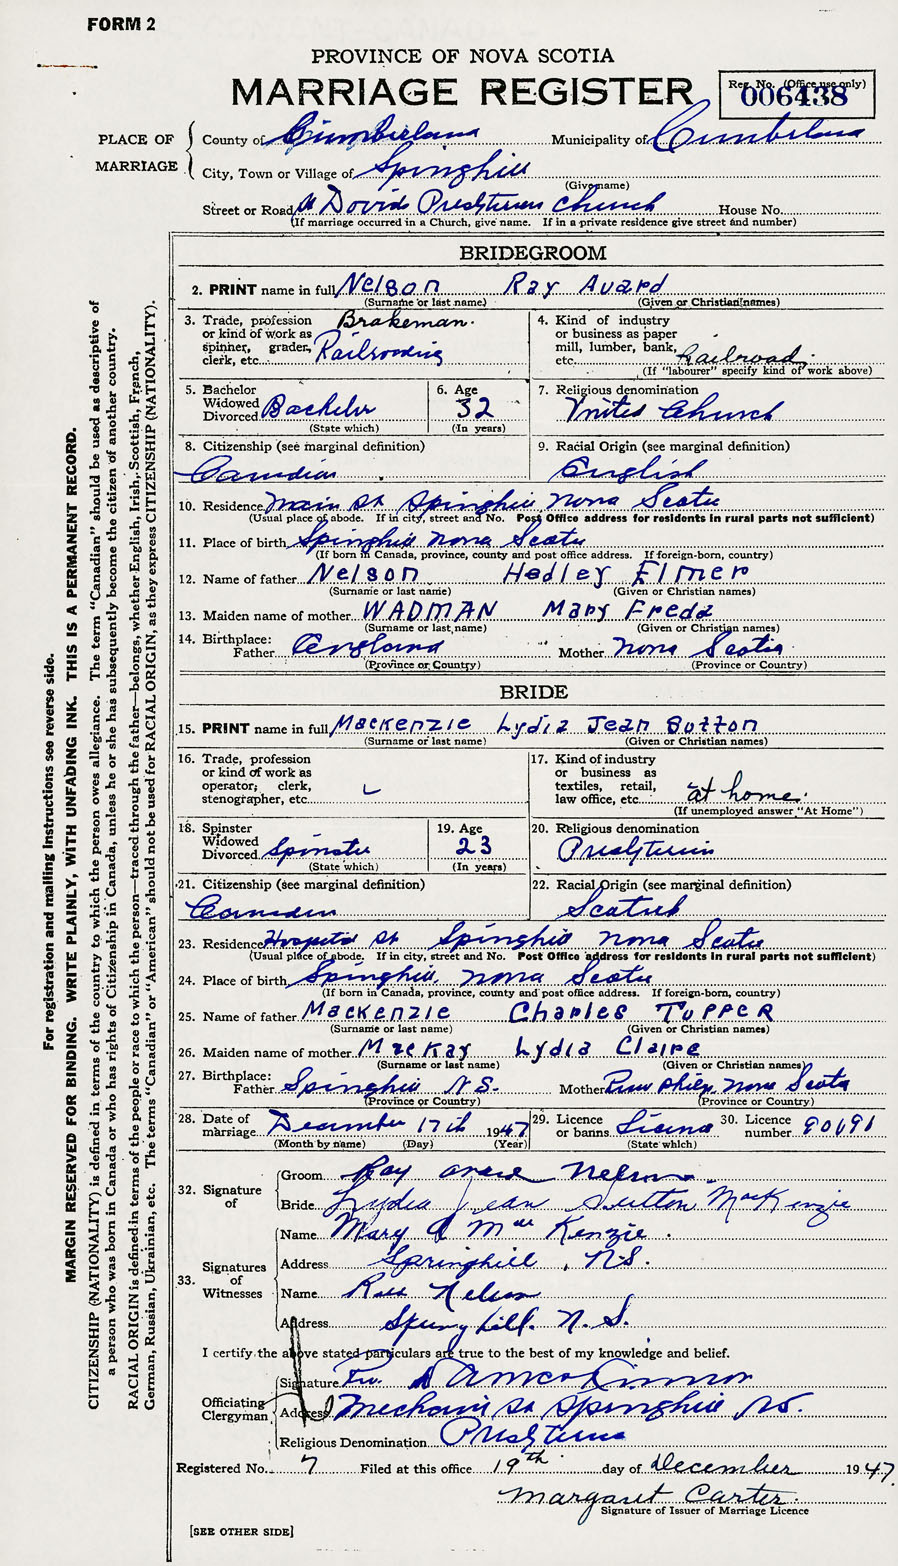 FORM 2
PROVINCE OF NOVA SCOTIA
MARRIAGE REGISTER
Reg. No. (Office use only)
006438
PLACE OF MARRIAGE
County of Cumberland Municipality of Cumberland
City, Town or Village of Springhill
(Give name)
Street or Road St Davids Presbyterian Church House No.
(If marriage occurred in a Church, give name. If in a private residence give street and number)
BRIDEGROOM
2. PRINT name in full Nelson Ray Avard
(Surname or last name) (Given or Christian names)
3. Trade, profession or kind of work as spinner, grader, clerk, etc. Brakeman. Railroading
4. Kind of industry or business as paper mill, lumber, bank, etc. Railroad.
(If "labourer" specify kind of work above)
5. Bachelor Widowed Divorced Bachelor
(State which)
6. Age 32
(In years)
7. Religious denomination United Church
8. Citizenship (see marginal definition) Canadian
9. Racial Origin (see marginal definition) English
10. Residence Main St Springhill Nova Scotia
(Usual place of abode. If in city, street and No. Post Office address for residents in rural parts not sufficient)
11. Place of birth Springhill Nova Scotia
(If born in Canada, province, county and post office address. If foreign-born, country)
12. Name of father Nelson Hedley Elmer
(Surname or last name) (Given or Christian names)
13. Maiden name of mother WADMAN Mary Freda
(Surname or last name) (Given or Christian names)
14. Birthplace: Father England Mother Nova Scotia
(Province or Country) (Province or Country)
BRIDE
15. PRINT name in full Mackenzie Lydia Jean Sutton
(Surname or last name) (Given or Christian names)
16. Trade, profession or kind of work as operator; clerk, stenographer, etc.
17. Kind of industry or business as textiles, retail, law office, etc. at home.
(If unemployed answer "At Home")
18. Spinster Widowed Divorced Spinster
(State which)
19. Age 23
(In years)
20. Religious denomination Presbyterian
21. Citizenship (see marginal definition) Canadian
22. Racial Origin (see marginal definition) Scotish
23. Residence Hospital St Springhill Nova Scotia
(Usual place of abode. If in city, street and No. Post Office address for residents in rural parts not sufficient)
24. Place of birth Springhill, Nova Scotia
(If born in Canada, province, county and post office address. If foreign-born, country)
25. Name of father Mackenzie Charles TUPPER
(Surname or last name) (Given or Christian names)
26. Maiden name of mother MacKay Lydia Claire
(Surname or last name) (Given or Christian names)
27. Birthplace: Father Springhill N.S. Mother Nova Scotia
(Province or Country) (Province or Country)
28. Date of marriage December 17th 1947
(Month by name) (Day) (Year)
29. Licence or banns License
(State which)
30. Licence number 80691
32. Signature of
Groom Ray Avard Nelson.
Bride Lydia Jean Sutton MacKenzie
33. Signatures of Witnesses
Name Mary A MacKenzie.
Address Springhill, N.S.
Name Ross Nelson
Address Springhill. N.S.
I certify the above stated particulars are true to the best of my knowledge and belief.
Officiating Clergyman
Signature Rev.
Address Mechanic St Springhill N.S.
Religious Denomination Presbyterian
Registered No. 7 Filed at this office 19th day of December 1947.
Margaret Carter.
Signature of Issuer of Marriage Licence
[SEE OTHER SIDE]
For registration and mailing instructions see reverse side.
MARGIN RESERVED FOR BINDING. WRITE PLAINLY, WITH UNFADING INK. THIS IS A PERMANENT RECORD.
CITIZENSHIP (NATIONALITY) is defined in terms of the country to which the person owes allegiance. The term "Canadian" should be used as descriptive of
a person who was born in Canada or who has rights of Citizenship in Canada, unless he or she has subsequently become the citizen of another country.
RACIAL ORIGIN is defined in terms of the people or race to which the person—traced through the father—belongs, whether English, Irish, Scottish, French,
German, Russian, Ukrainian, etc. The terms "Canadian" or "American" should not be used for RACIAL ORIGIN, as they express CITIZENSHIP (NATIONALITY).